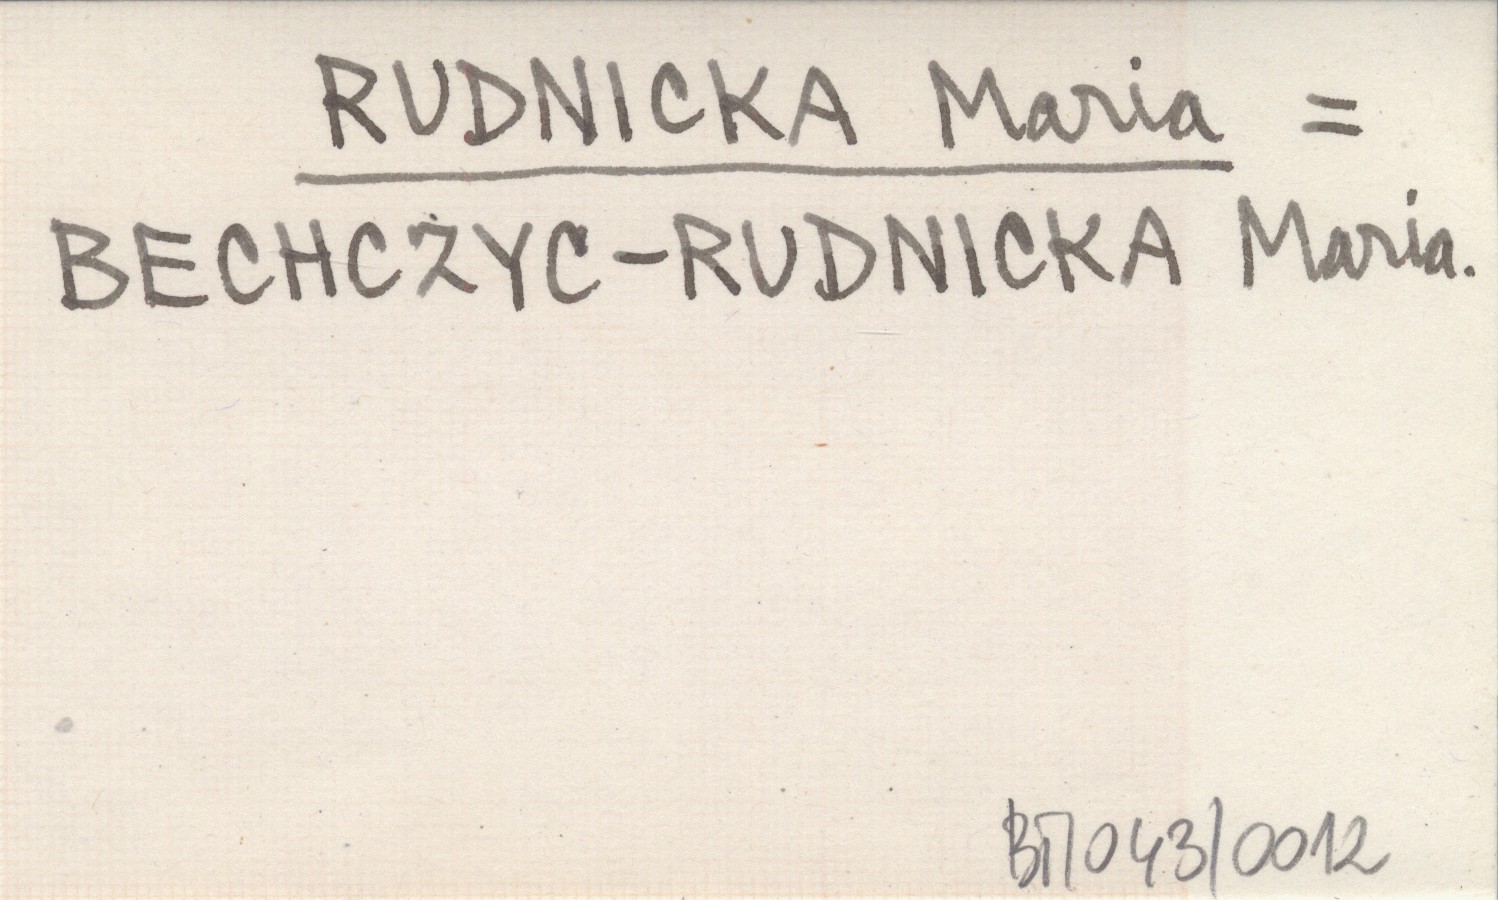 RUDNICKA Maria =
BECHCZYC-RUDNICKA Maria.
BT/043/0012